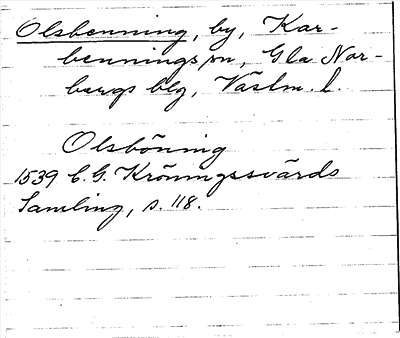 Olsbenning, by, Kar-
bennings sn, Gla Nor-
bergs blg, Västm. l.
Olsböning
1539 C. G. Kröningssvärds
Samling, s. 118.